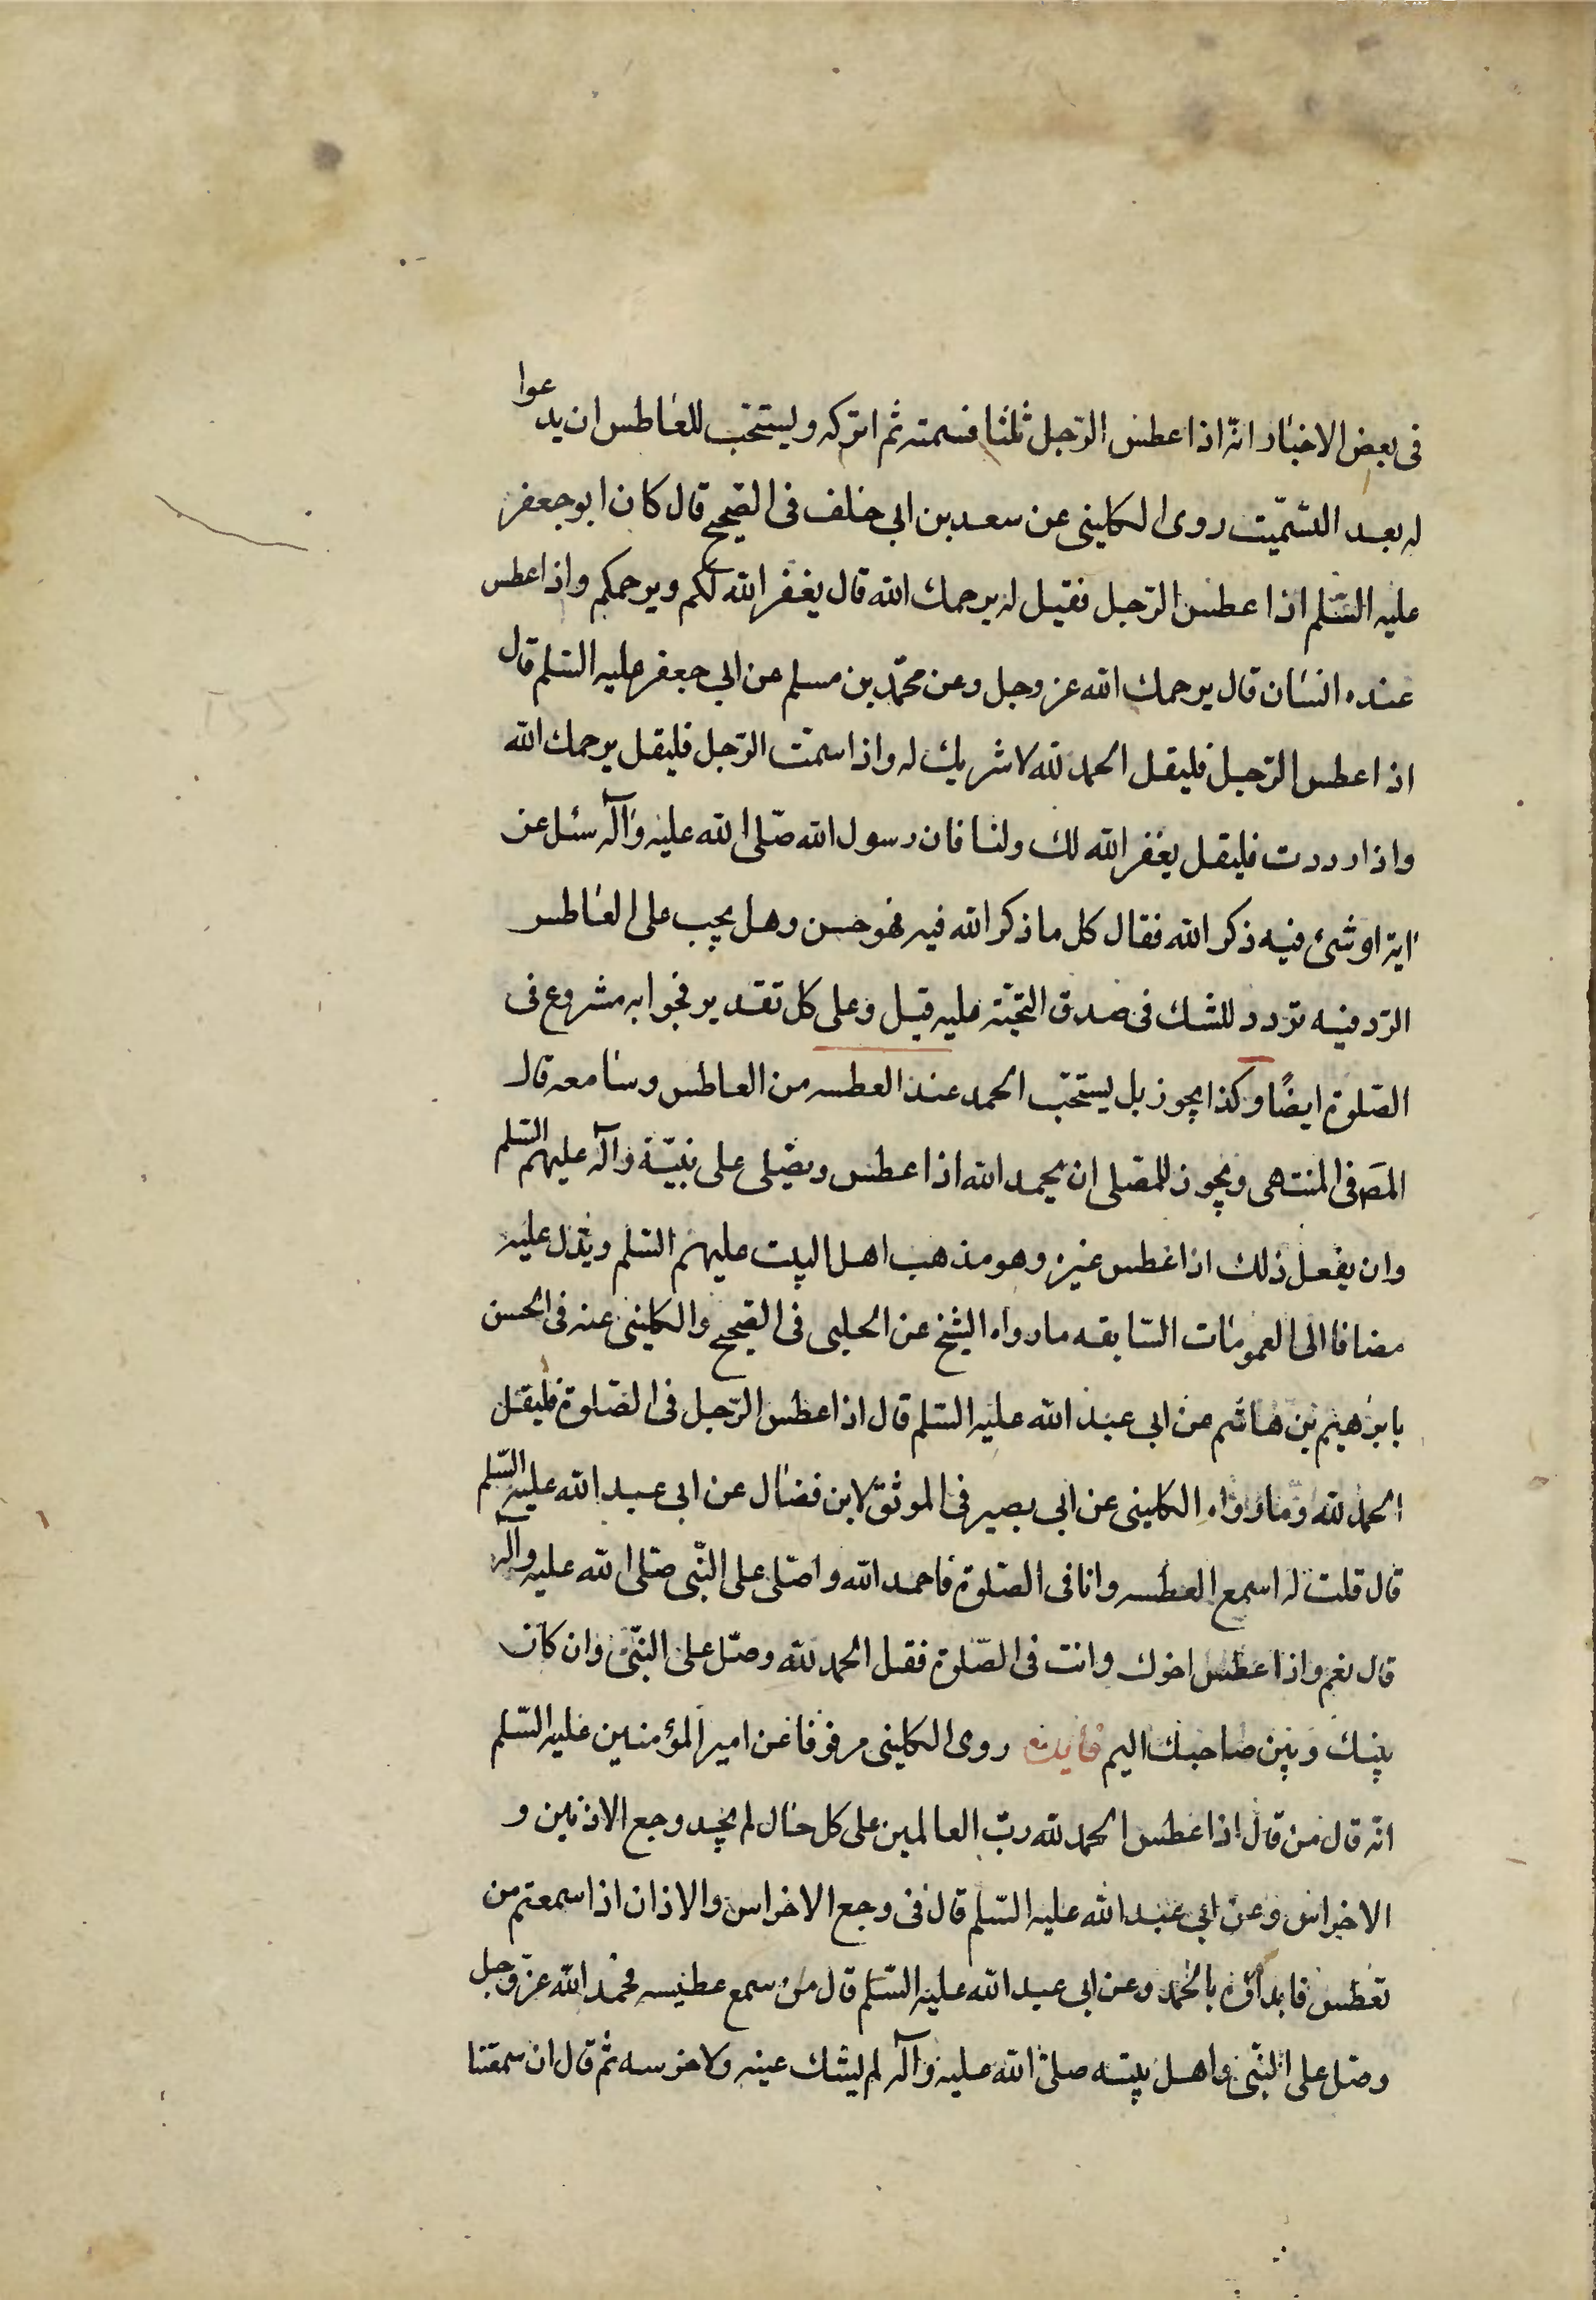 فى بعض الاخبار انه اذا عطس الرّجل ثلثا فسمته ثم اتركه ويستحب للعاطس ان يدعوا
له بعد التسميت روى الكلينى عن سعد بن ابى خلف فى الصحيح قال كان ابو جعفر
عليه السّلم اذا عطس الرّجل فقيل له يرحمك الله قال يغفر الله لكم ويرحمكم واذا عطس
عنده انسان قال يرحمك الله عز وجل وعن محمّد بن مسلم عن ابى جعفر عليه السّلم قال
اذا عطس الرّجل فليقل الحمد لله لا شريك له واذا سمّت الرّجل فليقل يرحمك الله
واذا رددت فليقل يغفر الله لك ولنا فان رسول الله صّلى الله عليه وآله سئل عن
اية او شئ فيه ذكر الله فقال كل ما ذكر الله فيه فهو حسن وهل يجب على العاطس
الرّد فيه تردد للشك فى صدق التحيّة عليه قيل وعلى كل تقدير فجوابه مشروع فى
الصّلوة ايضًا وكذا يجوز بل يستحّب الحمد عند العطسه من العاطس وسامعه قال
المص فى المنتهى ويجوز للمصلى ان يحمد الله اذا عطس ويصّلى على نبيّه وآله عليهم السّلم
وان يفعل ذلك اذا عطس غيره وهو مذهب اهل البيت عليهم السّلم ويدل عليه
مضافا الى العمومات السّابقه ما رواه الشيخ عن الحلبى فى الصحيح والكلينى عنه فى الحسن
بابرهيم بن هاشم عن ابى عبد الله عليه السّلم قال اذا عطس الرّجل فى الصّلوة فليقل
الحمد لله وما رواه الكلينى عن ابى بصير فى الموثق لابن فضال عن ابى عبد الله عليه السّلم
قال قلت له اسمع العطسه وانا فى الصّلوة فاحمد الله واصّلى على النّبى صّلى الله عليه وآله
قال نعم واذا عطس اخوك وانت فى الصّلوة فقل الحمد لله وصّل على النّبى وان كان
بينك وبين صاحبك اليم فايدة روى الكلينى مرفوفا عن امير المؤمنين عليه السّلم
انه قال من قال اذا عطس الحمد لله ربّ العالمين على كل حال لم يجد وجع الاذنين و
الاضراس وعن ابى عبد الله عليه السّلم قال فى وجع الاضراس والاذان اذا سمعتم من
تعطس فابدأوه بالحمد وعن ابى عبد الله عليه السّلم قال من سمع عطيسه فحمد الله عزّ وجل
وصّل على النّبى واهل بيته صلى الله عليه وآله لم يشك عينه ولا ضرسه ثم قال ان سمعتها